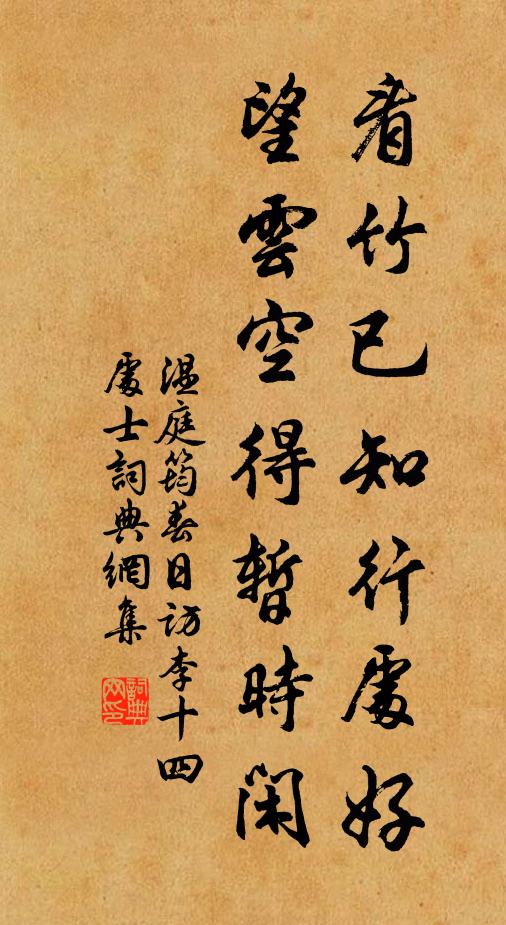 看竹已知行處好
望雲空得暫時閑
溫庭筠春日訪李十四
處士詞典網集
詞典
网印